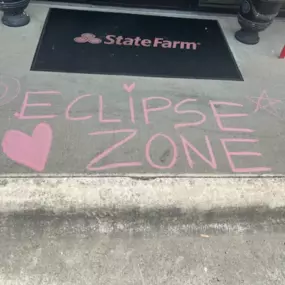 StateFarm
ECLIPSE
ZONE